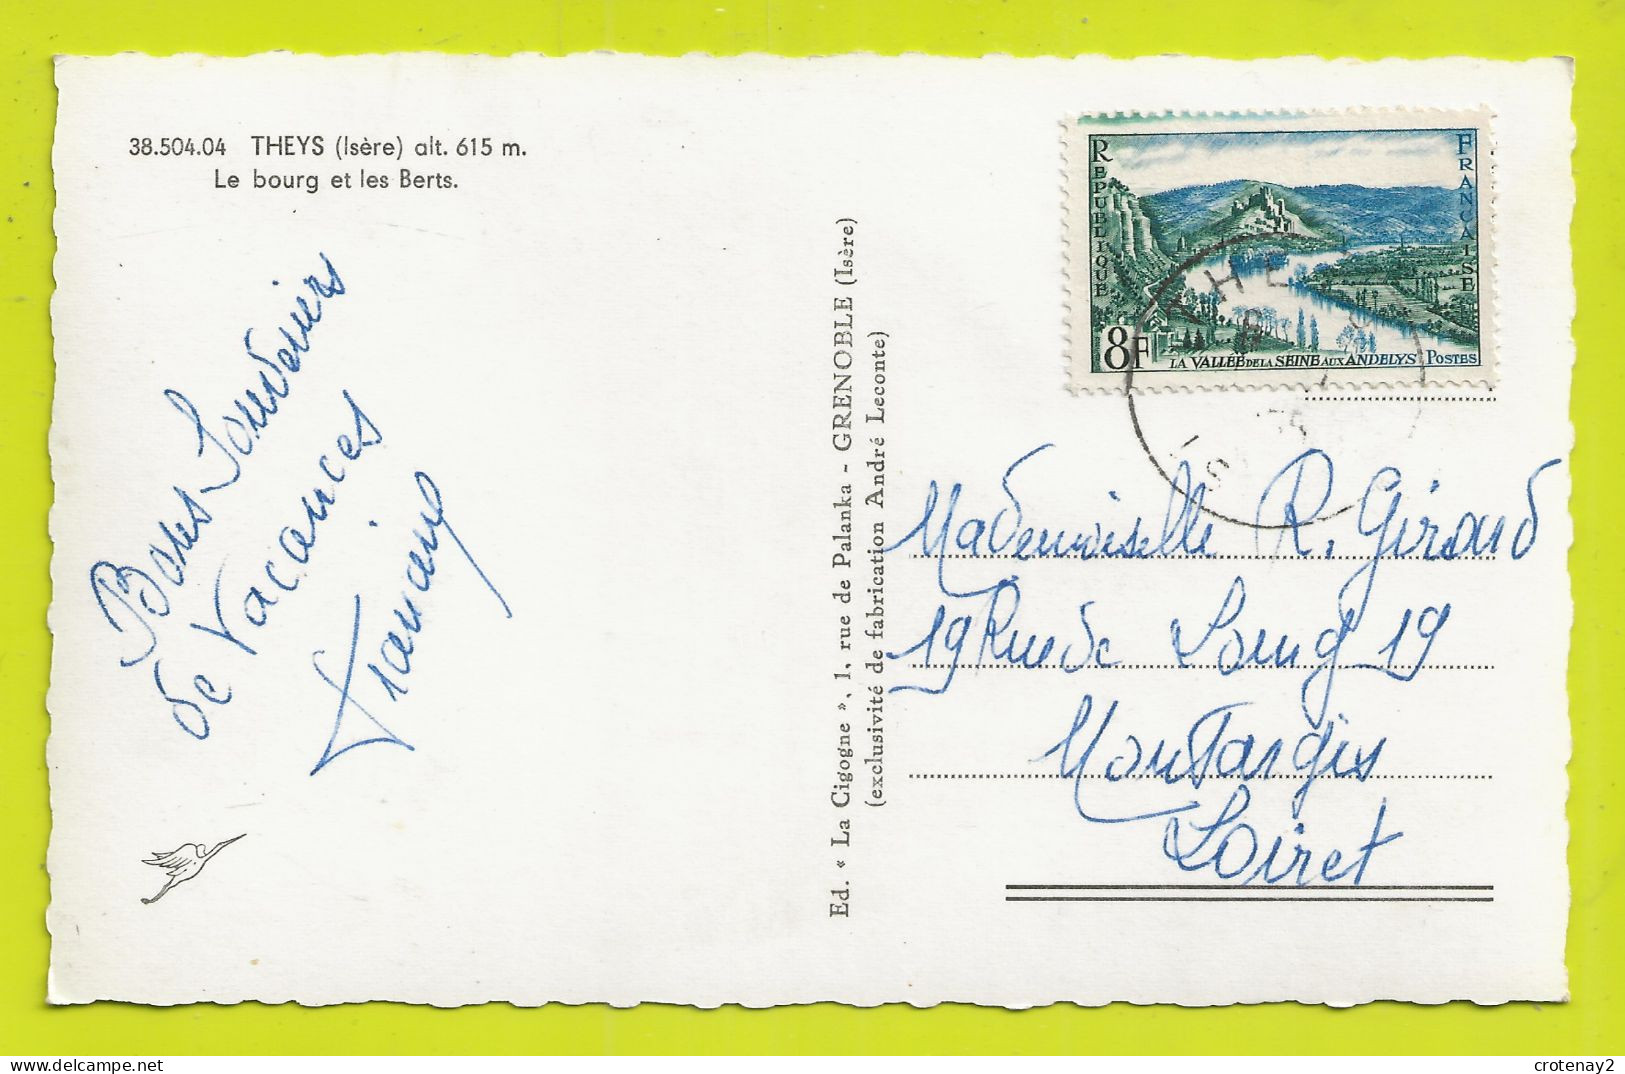 38.504.04 THEYS (Isère) alt. 615 m.
Le bourg et les Berts.
Bons Souvenirs
de Vacances
Ed. « La Cigogne », 1, rue de Palanka - GRENOBLE (Isère)
(exclusivité de fabrication André Leconte)
REPUBLIQUE
FRANCAISE
8F
LA VALLÉE DE LA SEINE AUX ANDELYS POSTES
THEYS
Mademoiselle R. Giraud
19 Rue de Loing 19
Montargis
Loiret
delcampe.net
crotenay2